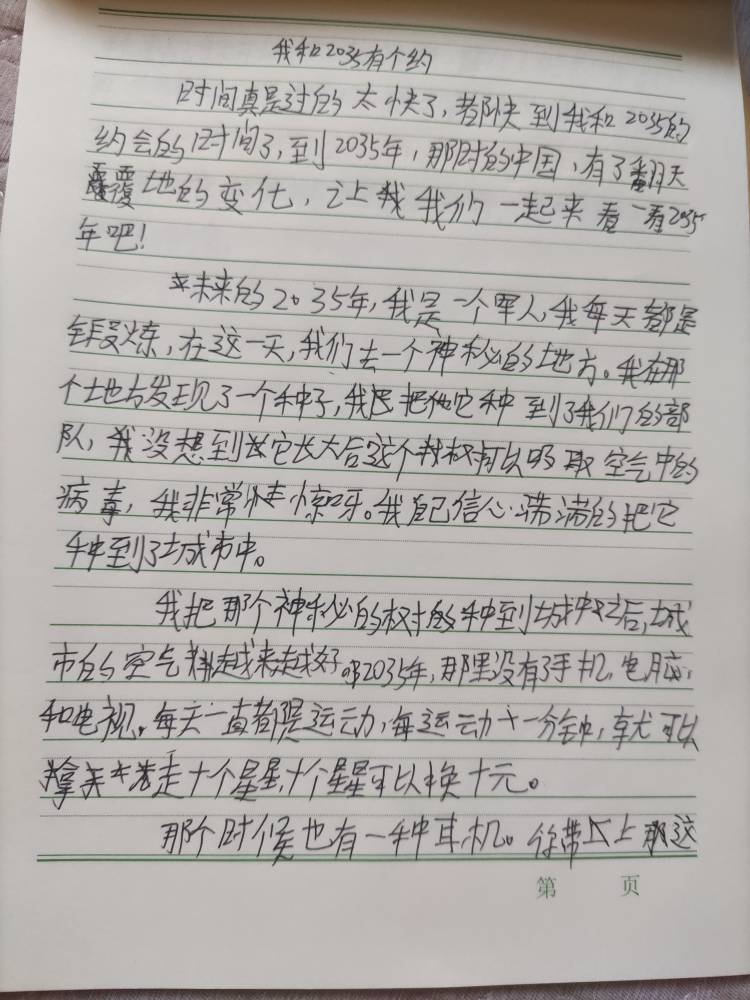 我和2035有个约
时间真是过的太快了,都快到我和2035的
约会的时间了,到2035年,那时的中国,有了翻天
覆地的变化,让我我们一起来看一看2035
年吧!
未来的2035年,我是一个军人,我每天都是
锻炼,在这一天,我们去一个神秘的地方。我在那
个地方发现了一个种子,我把它种到了我们的部
队,我没想到它长大后这个树可以吸取空气中的
病毒,我非常惊呀。我自己信心满满的把它
种到了城市中。
我把那个神秘的树的种到城中之后,城
市的空气越来越好。2035年,那里没有了手机,电脑,
和电视。每天一直都是运动,每运动十一分钟,就可以
拿走十个星星,十个星星可以换十元。
那个时候也有一种耳机。你带上这
第 页